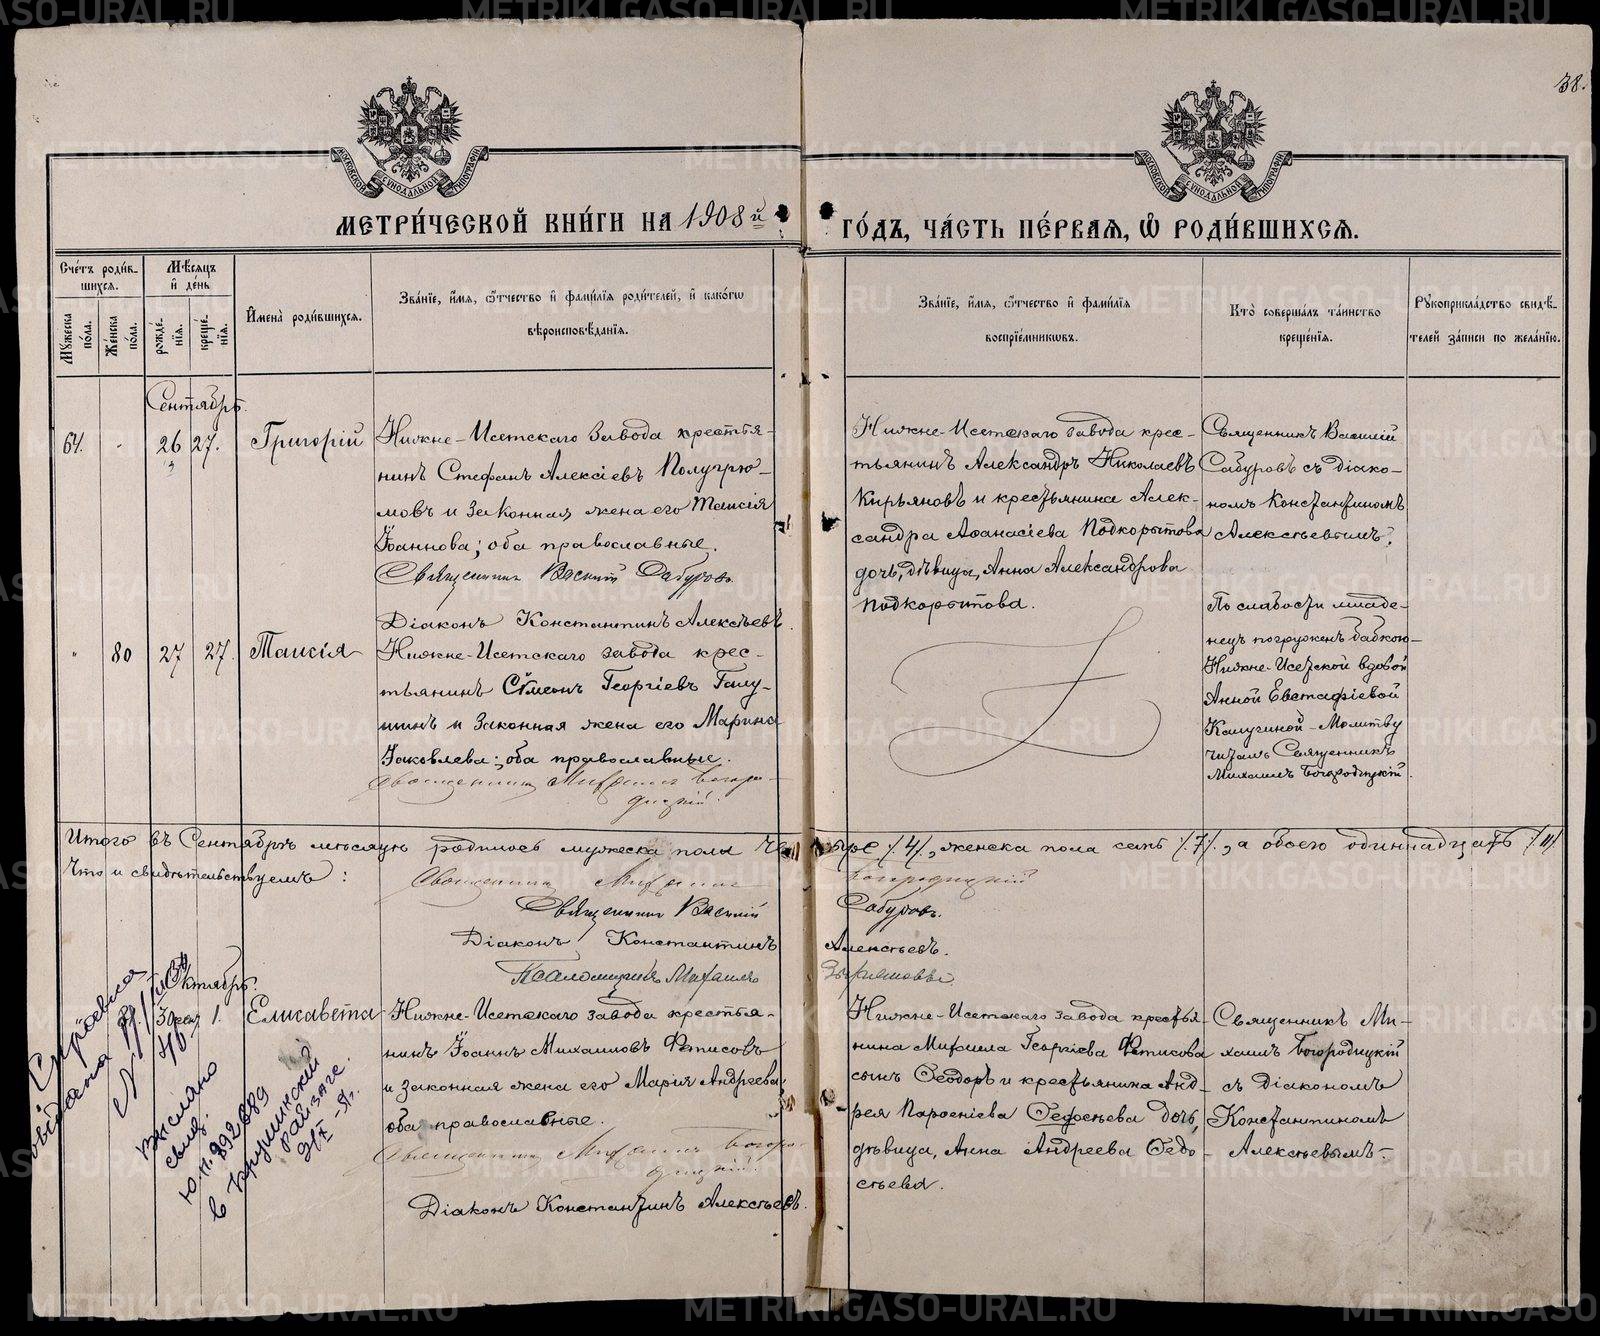 38.
МОСКОВСКОЙ СѴНОДАЛЬНОЙ ТИПОГРАФІИ
МОСКОВСКОЙ СѴНОДАЛЬНОЙ ТИПОГРАФІИ
МЕТРИ́ЧЕСКОЙ КНИ́ГИ НА 1908й ГО́ДЪ, ЧА́СТЬ ПЕ́РВАЯ, Ѽ РОДИ́ВШИХСЯ.
Сче́тъ роди́в-
шихся.
Мꙋ́жеска по́ла.
Же́нска по́ла.
Мѣ́сяцъ
и҆ де́нь
рожде́-нїя.
креще́-нїя.
И҆мена̀ роди́вшихся.
Зва́нїе, и҆́мя, ѻ҆́тчество и҆ фамі́лїя роди́телей, и҆ како́гѡ
вѣроисповѣ́данїя.
Зва́нїе, и҆́мя, ѻ҆́тчество и҆ фамі́лїя
воспрїе́мникѡвъ.
Кто̀ соверша́лъ та́инство
креще́нїя.
Рꙋкоприкла́дство свидѣ́-
телей за́писи по жела́нїю.
Сентябрь.
64. - 26 27. Григорій
Нижне-Исетскаго завода крестья-
нинъ Стефанъ Алексіевъ Полугрю-
мовъ и законная жена его Таисія
Іоаннова; оба православные.
Священникъ Василій Сабуровъ
Діаконъ Константинъ Алексѣевъ.
Нижне-Исетскаго завода крес-
тьянинъ Александръ Николаевъ
Кирьяновъ и крестьянина Алек-
сандра Аѳанасіева Подкорытова
дочь, дѣвица, Анна Александрова
Подкорытова.
Священникъ Василій
Сабуровъ съ діако-
номъ Константиномъ
Алексѣевымъ.
" 80 27 27. Таисія
Нижне-Исетскаго завода крес-
тьянинъ Сѵмеонъ Георгіевъ Галу-
шинъ и законная жена его Марина
Іаковлева; оба православные.
Священникъ Михаилъ Богоро-
дицкій.
По слабости младе-
нецъ погруженъ бабкою
Нижне-Исетской вдовой
Анной Евстафіевой
Калугиной - Молитву
читалъ Священникъ
Михаилъ Богородицкій.
Итого въ Сентябрѣ мѣсяцѣ родилось мужеска пола четыре /.4/., женска пола семь /.7/., а обоего одиннадцать /.11/.
Что и свидѣтельствуемъ:
Священникъ Михаилъ Богородицкій
Священникъ Василій Сабуровъ.
Діаконъ Константинъ Алексѣевъ.
Псаломщикъ Михаилъ
Октябрь.
81. 30 сен. 1. Елисавета
Нижне-Исетскаго завода крестья-
нинъ Іоаннъ Михаиловъ Фетисовъ
и законная жена его Марія Андреева,
оба православные.
Священникъ Михаилъ Богоро-
дицкій.
Діаконъ Константинъ Алексѣевъ.
Нижне-Исетскаго завода крестья-
нина Михаила Георгіева Фетисова
сынъ Ѳеодоръ и крестьянина Анд-
рея Парѳеніева дочь,
дѣвица, Анна Андреева Ѳедо-
сѣева.
Священникъ Ми-
хаилъ Богородицкій
съ діакономъ
Константиномъ
Алексѣевымъ.
Справка
выслано
свид.
ю. п. 892889
в райзагс
METRIKI.GASO-URAL.RU